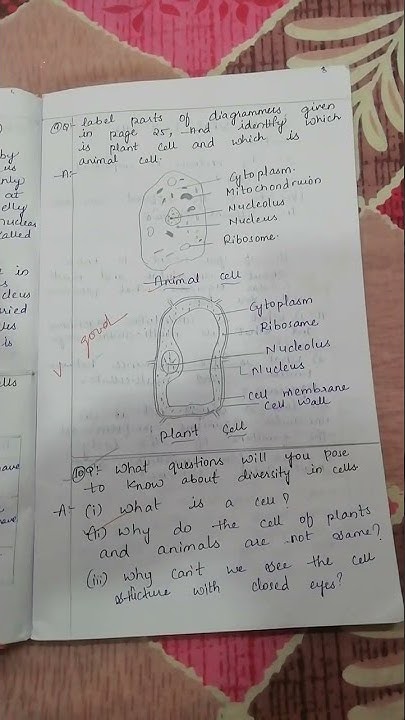 8
9Q:- label parts of diagrammes given
in page 25, And identify which
is plant cell and which is
animal cell.
A:-
Cytoplasm.
Mitochondruion
Nucleolus
Nucleus
Ribosome.
Animal cell
good
Cytoplasm
Ribosame
Nucleolus
Nucleus
Cell membrane
Cell wall
plant Cell
10Q:- What questions will you pose
to know about diversity in cells
A:- (i) what is a cell?
(ii) why do the cell of plants
and animals are not same?
(iii) why can't we see the cell
structure with closed eyes?
by
us
at
elly
nucleas
called
in
cleus
ried
is
ells